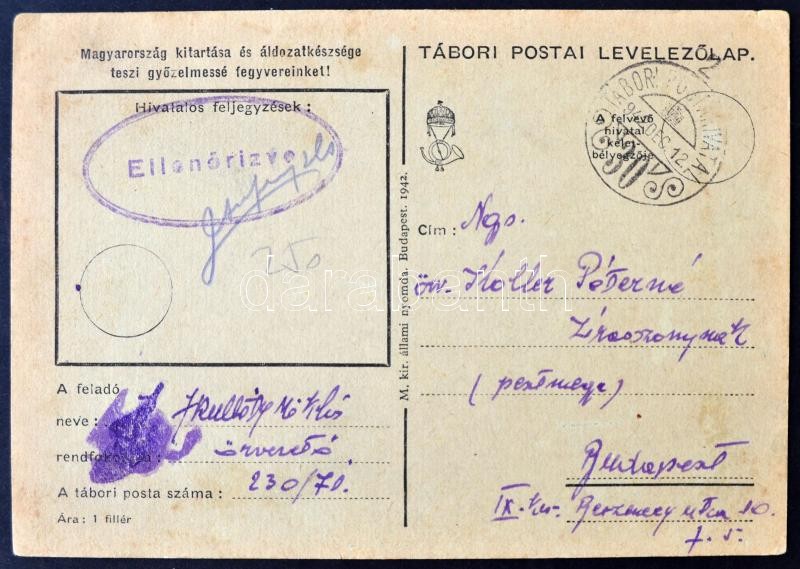 Magyarország kitartása és áldozatkészsége
teszi győzelmessé fegyvereinket!
Hivatalos feljegyzések:
Ellenőrizve
250
A feladó
neve:
rendfokozata: őrvezető
A tábori posta száma: 230/70.
Ára: 1 fillér
M. kir. állami nyomda. Budapest. 1942.
TÁBORI POSTAI LEVELEZŐLAP.
TÁBORI POSTAHIVATAL
A felvevő
hivatal
kelet-
bélyegzője
Cím: Ngs.
öv. Koller Péterné
Úrasszonynak
(pestmegye)
Budapest
IX. ker. utca 10.
darabanth